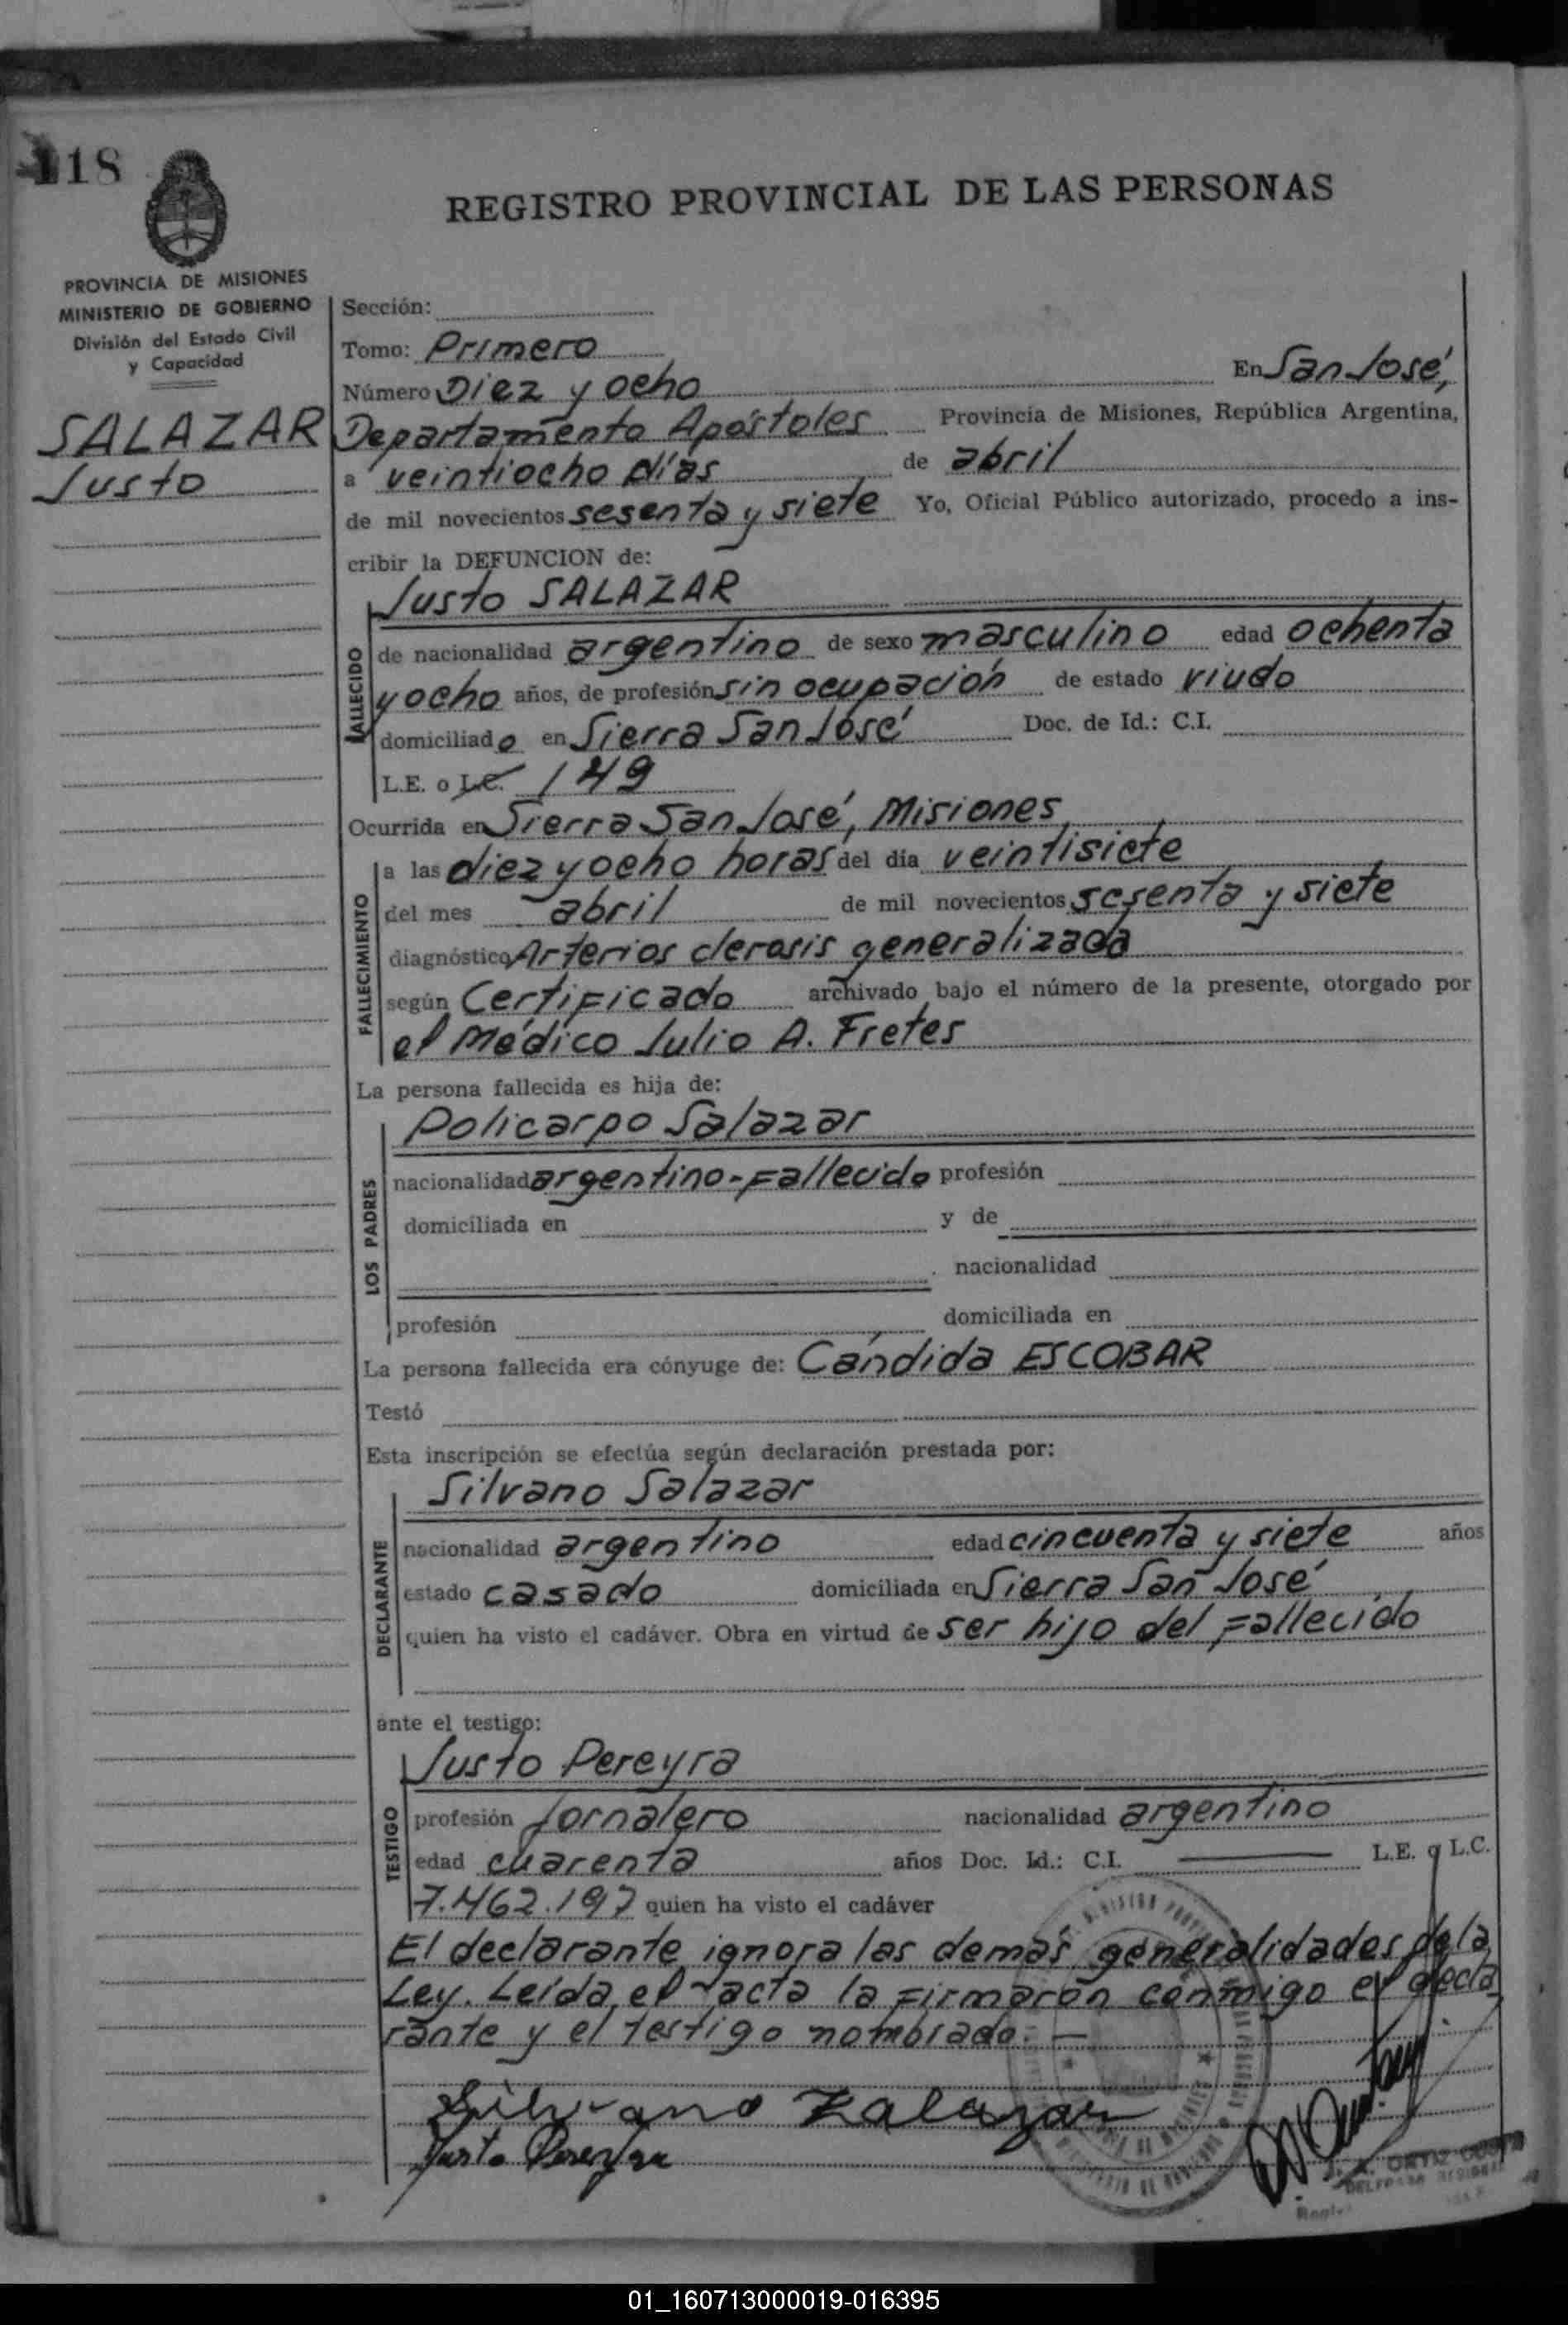 118
REGISTRO PROVINCIAL DE LAS PERSONAS
PROVINCIA DE MISIONES
MINISTERIO DE GOBIERNO
División del Estado Civil
y Capacidad
SALAZAR
Justo
Sección:
Tomo: Primero
Número Diez y ocho En San José,
Departamento Apóstoles Provincia de Misiones, República Argentina,
a veintiocho días de abril
de mil novecientos sesenta y siete Yo, Oficial Público autorizado, procedo a ins-
cribir la DEFUNCION de:
Justo SALAZAR
FALLECIDO
de nacionalidad argentino de sexo masculino edad ochenta
y ocho años, de profesión sin ocupación de estado viudo
domiciliado en Sierra San José Doc. de Id.: C.I.
L.E. o L.C. 149
Ocurrida en Sierra San José, Misiones
FALLECIMIENTO
a las diez y ocho horas del día veintisiete
del mes abril de mil novecientos sesenta y siete
diagnóstico Arterios clerosis generalizada
según Certificado archivado bajo el número de la presente, otorgado por
el Médico Julio A. Fretes
La persona fallecida es hija de:
LOS PADRES
Policarpo Salazar
nacionalidad argentino-Fallecido profesión
domiciliada en y de
nacionalidad
profesión domiciliada en
La persona fallecida era cónyuge de: Cándida ESCOBAR
Testó
Esta inscripción se efectúa según declaración prestada por:
DECLARANTE
Silvano Salazar
nacionalidad argentino edad cincuenta y siete años
estado casado domiciliada en Sierra San José
quien ha visto el cadáver. Obra en virtud de ser hijo del Fallecido
ante el testigo:
TESTIGO
Justo Pereyra
profesión Jornalero nacionalidad argentino
edad cuarenta años Doc. Id.: C.I. L.E. o L.C.
7.462.197 quien ha visto el cadáver
El declarante ignora las demás generalidades de la
Ley. Leída el acta la Firmaron conmigo el decla
rante y el testigo nombrado. —
Silvano Zalazar
Justo Pereyra
ORTIZ
01_160713000019-016395